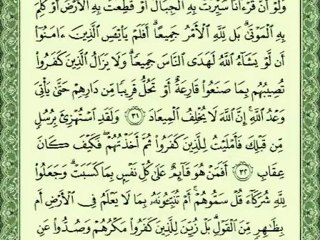 وَلَوْ أَنَّ قُرْءَانًا سُيِّرَتْ بِهِ ٱلْجِبَالُ أَوْ قُطِّعَتْ بِهِ ٱلْأَرْضُ أَوْ كُلِّمَ
بِهِ ٱلْمَوْتَىٰ ۗ بَل لِّلَّهِ ٱلْأَمْرُ جَمِيعًا ۗ أَفَلَمْ يَا۟يْـَٔسِ ٱلَّذِينَ ءَامَنُوٓا۟
أَن لَّوْ يَشَآءُ ٱللَّهُ لَهَدَى ٱلنَّاسَ جَمِيعًا ۗ وَلَا يَزَالُ ٱلَّذِينَ كَفَرُوا۟
تُصِيبُهُم بِمَا صَنَعُوا۟ قَارِعَةٌ أَوْ تَحُلُّ قَرِيبًا مِّن دَارِهِمْ حَتَّىٰ يَأْتِىَ
وَعْدُ ٱللَّهِ ۚ إِنَّ ٱللَّهَ لَا يُخْلِفُ ٱلْمِيعَادَ ٣١ وَلَقَدِ ٱسْتُهْزِئَ بِرُسُلٍ
مِّن قَبْلِكَ فَأَمْلَيْتُ لِلَّذِينَ كَفَرُوا۟ ثُمَّ أَخَذْتُهُمْ ۖ فَكَيْفَ كَانَ
عِقَابِ ٣٢ أَفَمَنْ هُوَ قَآئِمٌ عَلَىٰ كُلِّ نَفْسٍۭ بِمَا كَسَبَتْ ۗ وَجَعَلُوا۟
لِلَّهِ شُرَكَآءَ قُلْ سَمُّوهُمْ ۚ أَمْ تُنَبِّـُٔونَهُۥ بِمَا لَا يَعْلَمُ فِى ٱلْأَرْضِ أَم
بِظَـٰهِرٍ مِّنَ ٱلْقَوْلِ ۗ بَلْ زُيِّنَ لِلَّذِينَ كَفَرُوا۟ مَكْرُهُمْ وَصُدُّوا۟ عَنِ